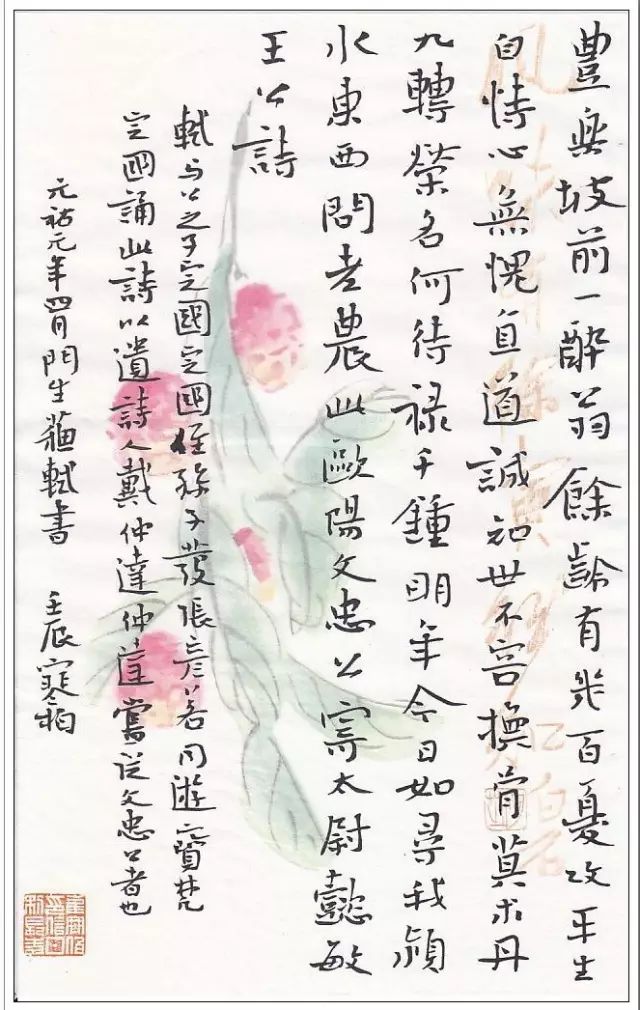 豐樂坡前一醉翁餘齡有幾百憂攻平生
自恃心無愧直道誠知世不容換骨莫求丹
九轉榮名何待祿千鍾明年今日如尋我潁
水東西問老農此歐陽文忠公寄太尉懿敏
王公詩
軾與公之子定國定國侄孫子發張彥若同遊寶梵
定國誦此詩以遺詩人戴仲達仲達嘗從文忠公者也
元祐元年四月門生蘇軾書
壬辰寒柏